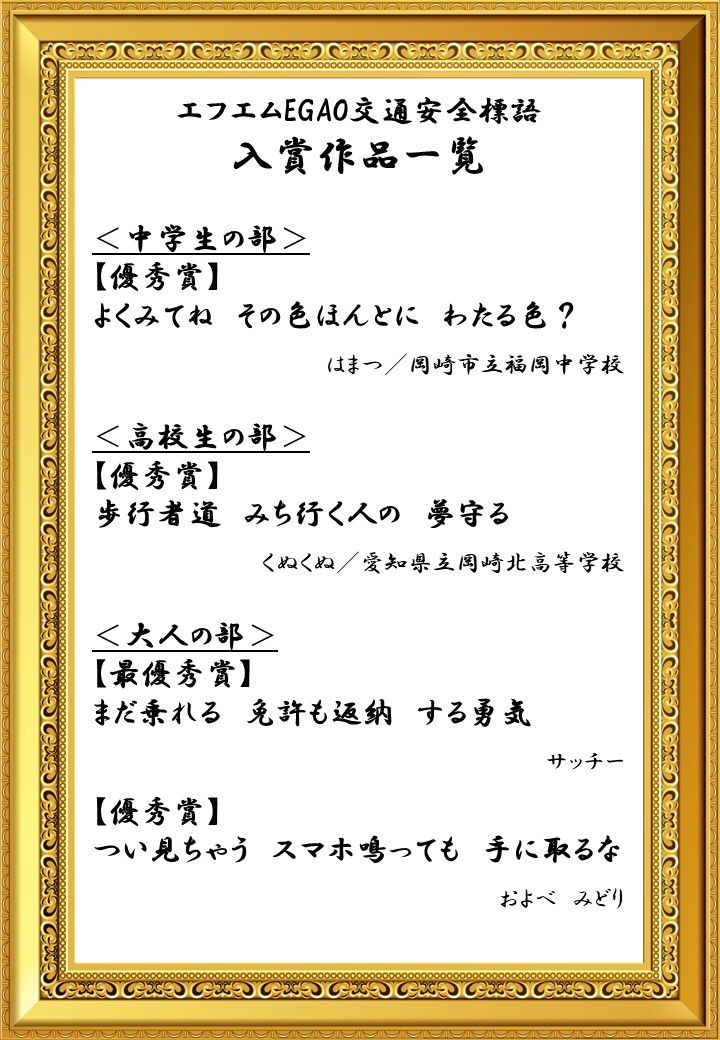 エフエムEGAO交通安全標語
入賞作品一覧
＜中学生の部＞
【優秀賞】
よくみてね　その色ほんとに　わたる色？
はまつ／岡崎市立福岡中学校
＜高校生の部＞
【優秀賞】
歩行者道　みち行く人の　夢守る
くぬくぬ／愛知県立岡崎北高等学校
＜大人の部＞
【最優秀賞】
まだ乗れる　免許も返納　する勇気
サッチー
【優秀賞】
つい見ちゃう　スマホ鳴っても　手に取るな
およべ　みどり